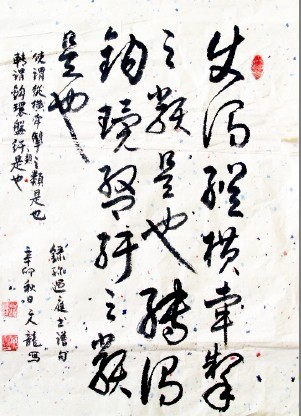 使謂縱橫牽掣
之類是也轉謂
鈎環盤紆之類
是也
使謂縱橫牽掣之類是也
轉謂鈎環盤紆是也
錄孫過庭書譜句
辛卯秋日文龍寫